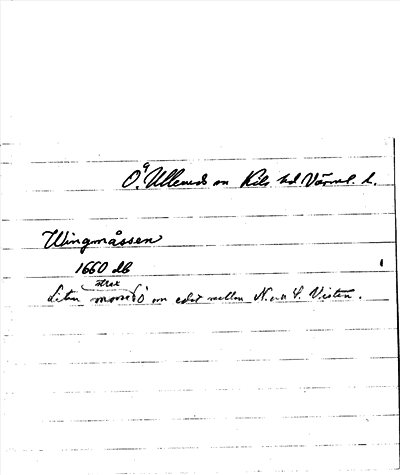 Ö. Ulleruds sn Kils hd Värml. l.
Wingmåssen
1660 db
strax
Liten mosse Ö om edet mellan N. och S. Visten.